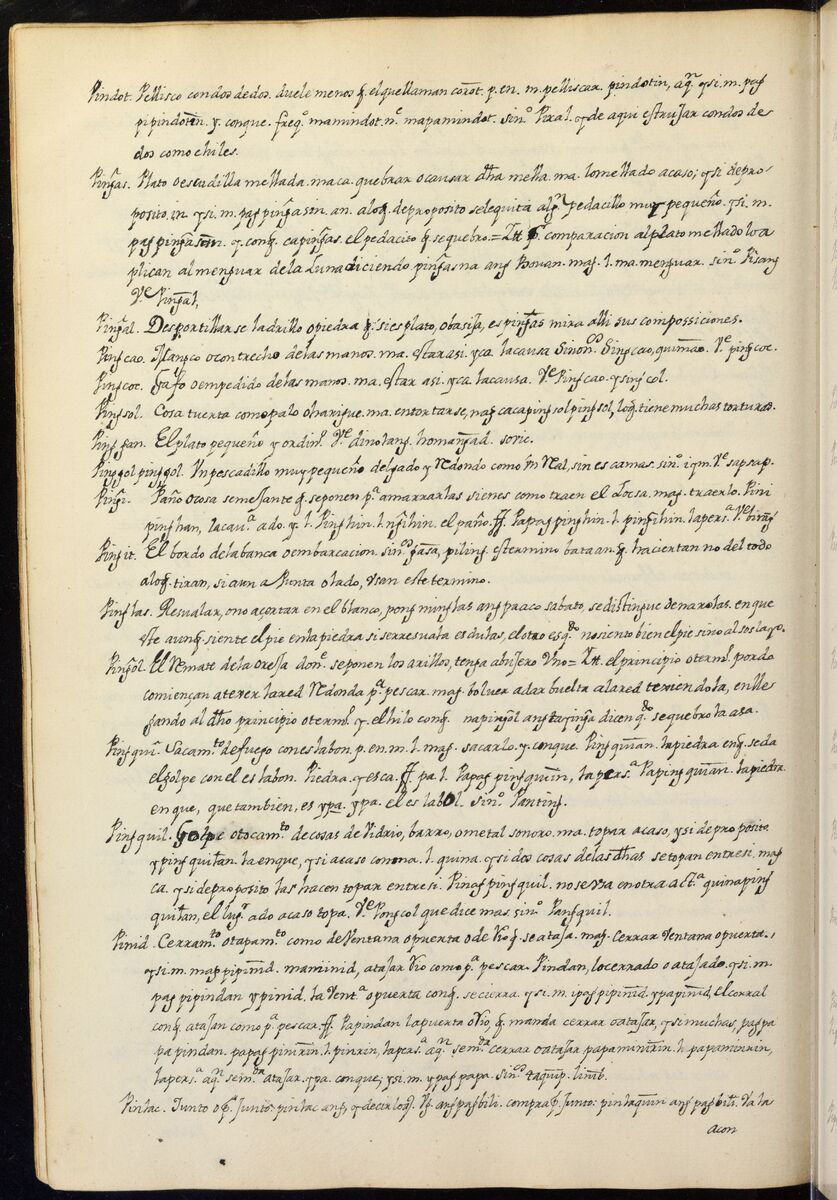 Pindot. Pellisco con dos dedos. duele menos q̃. el que llaman corot. p. en. m. pelliscar. pindotin, aq̃ⁿ. ysi. m. pag
pipindotin. y. conque. freq.º mamindot. n.ᵉ mapamindot. sin.º Piral. y de aqui estrujar con dos de
dos como chiles.
Pingas. Plato o escudilla mellada. maca. quebrar o causar dħa mella. ma. lo mellado acaso; ysi depro-
posito, in. ysi. m. pag pingasin. an. aloq̃. deproposito selequita alg.ⁿ pedacillo muy pequeño. ysi. m.
pag pingasan. y. conq̃. capingas. el pedacito q̃ sequebro.= Itt. comparacion alplato mellado lo a
plican al menguar de la Luna diciendo pingas na ang Bovan. mag. l. ma. menguar. sin.º Pisang
V.ᵉ Pingal,
Pingal. Desportillarse ladrillo opiedra q̃ si es plato, obasija, es pingas mira alli sus composiciones.
Pingcao. Manco o contrecho delas manos. ma. estar asi. yca. la causa. Sinon.ᵒˢ Singcao, quimao. V.ᵉ pingcoc.
Pingcoc. Gafo oempedido delas manos. ma. estar asi. yca. la causa. V.ᵉ Pingcao. y singcol.
Pingsol. Cosa tuerta como palo oharigue. ma. entortarse, nag cacapingsolpingsol, loq̃. tiene muchas torturas.
Pinggan. El plato pequeño y ordin.º V.ᵉ dinolang. homangad. soric.
Pinggol pinggol. Un pescadillo muy pequeño delgado y Redondo como Rl, sin escamas. sin.º iqm. V.ᵉ sapsap.
Pingi. Paño ocosa semejante q̃. seponen p.ᵃ amarrarlas sienes como traen el tocsa. mag. traerlo. Pini
pinghan, lacau.ᵃ ado. y. l. Pinghin. l. ngihin. el paño. ff. Papag pinghin. l. pingihin. lapers.ᵃ V.ᵉ biring
Pingit. El bordo dela banca oembarcacion. sin.º gasa, piling. estermino bataan. q̃. haciertan no del todo
aloq̃. tiran, si aun a Punta olado, usan este termino.
Pinglas. Resvalar, ono açertar en el blanco, pong minglas ang paaco sabato, sedistingue denarolas. en que
este aunq̃. siente el pie enla piedra si serresvala es dulas, el otro es q̃ᵈᵒ nosiento bien el pie sino al soslayo.
Pingol. El Remate dela oreja don.ᵉ seponen los arillos, tenga abujero Uno= Itt. el principio oterm.º pordo
comiençan atexer lared Redonda p.ᵃ pescar. mag. bolver adar buelta alared texiendola, enlle
gando al dħo principio oterm.º y. el hilo conq̃. napingol ang tayinga dicen q̃ᵈᵒ sequebro la asa.
Pingqui. Sacam.ᵗᵒ de fuego con eslabon. p. en. m. l. mag. sacarlo. y. conque. Pingquian. lapiedra enq̃. seda
elgolpe con el eslabon. Piedra. yesca. ff. pa. l. Papag pingquiin, lapers.ᵃ Papingquian. lapiedra
en que, que tambien, es ypa. ypa. el eslabol. sin.º Panting.
Pingquil. Golpe otocam.ᵗᵒ de cosas de Vidrio, barro, ometal sonoro. ma. topar acaso, ysi de proposito
ypingquitan. laenque, ysi acaso conna. l. quina. ysi dos cosas delas dħas setopan entresi. mag
ca. ysi deproposito las hacen topar entresi. Pinag pingquil. nosevsa enotra act.ᵃ quinaping
quilan, el lug.ʳ ado acaso topa. V.ᵉ Pongcol que dice mas. sin.º Pangquil.
Pinid. Cerram.ᵗᵒ otapam.ᵗᵒ como de Ventana opuerta ode Rio q̃. se ataja. mag. cerrar Ventana opuerta.,
ysi. m. mag pipinid. maminid, atajar Rio como p.ᵃ pescar. Pindan, locerrado o atajado. ysi. m.
pag pipindan ypinid. la Vent.ᵃ opuerta conq̃. secierra. ysi. m. ipag pipinid, ypapinid, el corral
conq̃. atajan como p.ᵃ pescar. ff. Papindan lapuerta oRio, q̃. manda cerrar oatajar, ysi muchas, pagpa
papindan. papag pinirin. l. pinrin, lapers.ᵃ aq̃ⁿ sem.ᵈᵃ cerrar oatajar papaminirin. l. papaminrin,
lapers.ᵃ aq̃ⁿ sem.ᵈᵃ atajar. ypa. conque; ysi. m. ypag papa. sin.ᵒˢ taquip. limb.
Pinlac. Junto o p.ʳ junto: pinlac ang, y decirloq̃. V.g. ang pagbili. compra p.ʳ Junto: pinlaquin ang pagbili. Vala
acon